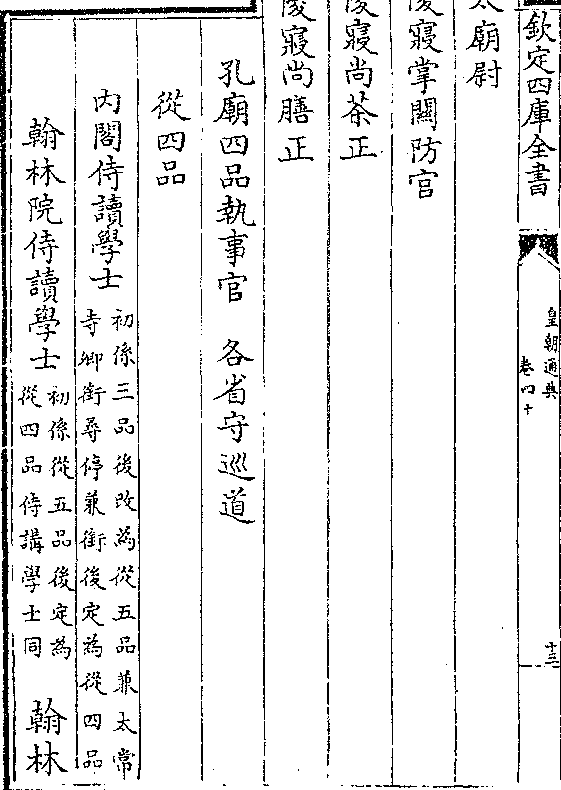 欽定四庫全書
皇朝通典
卷四十
十三
太廟尉
後寢掌關防官
後寢尚茶正
後寢尚膳正
孔廟四品執事官 各省守巡道
從四品
內閣侍讀學士 初係三品後改為從五品兼太常
寺卿銜尋停兼銜後定為從四品
翰林院侍讀學士 初係從五品後定為
從四品侍講學士同 翰林